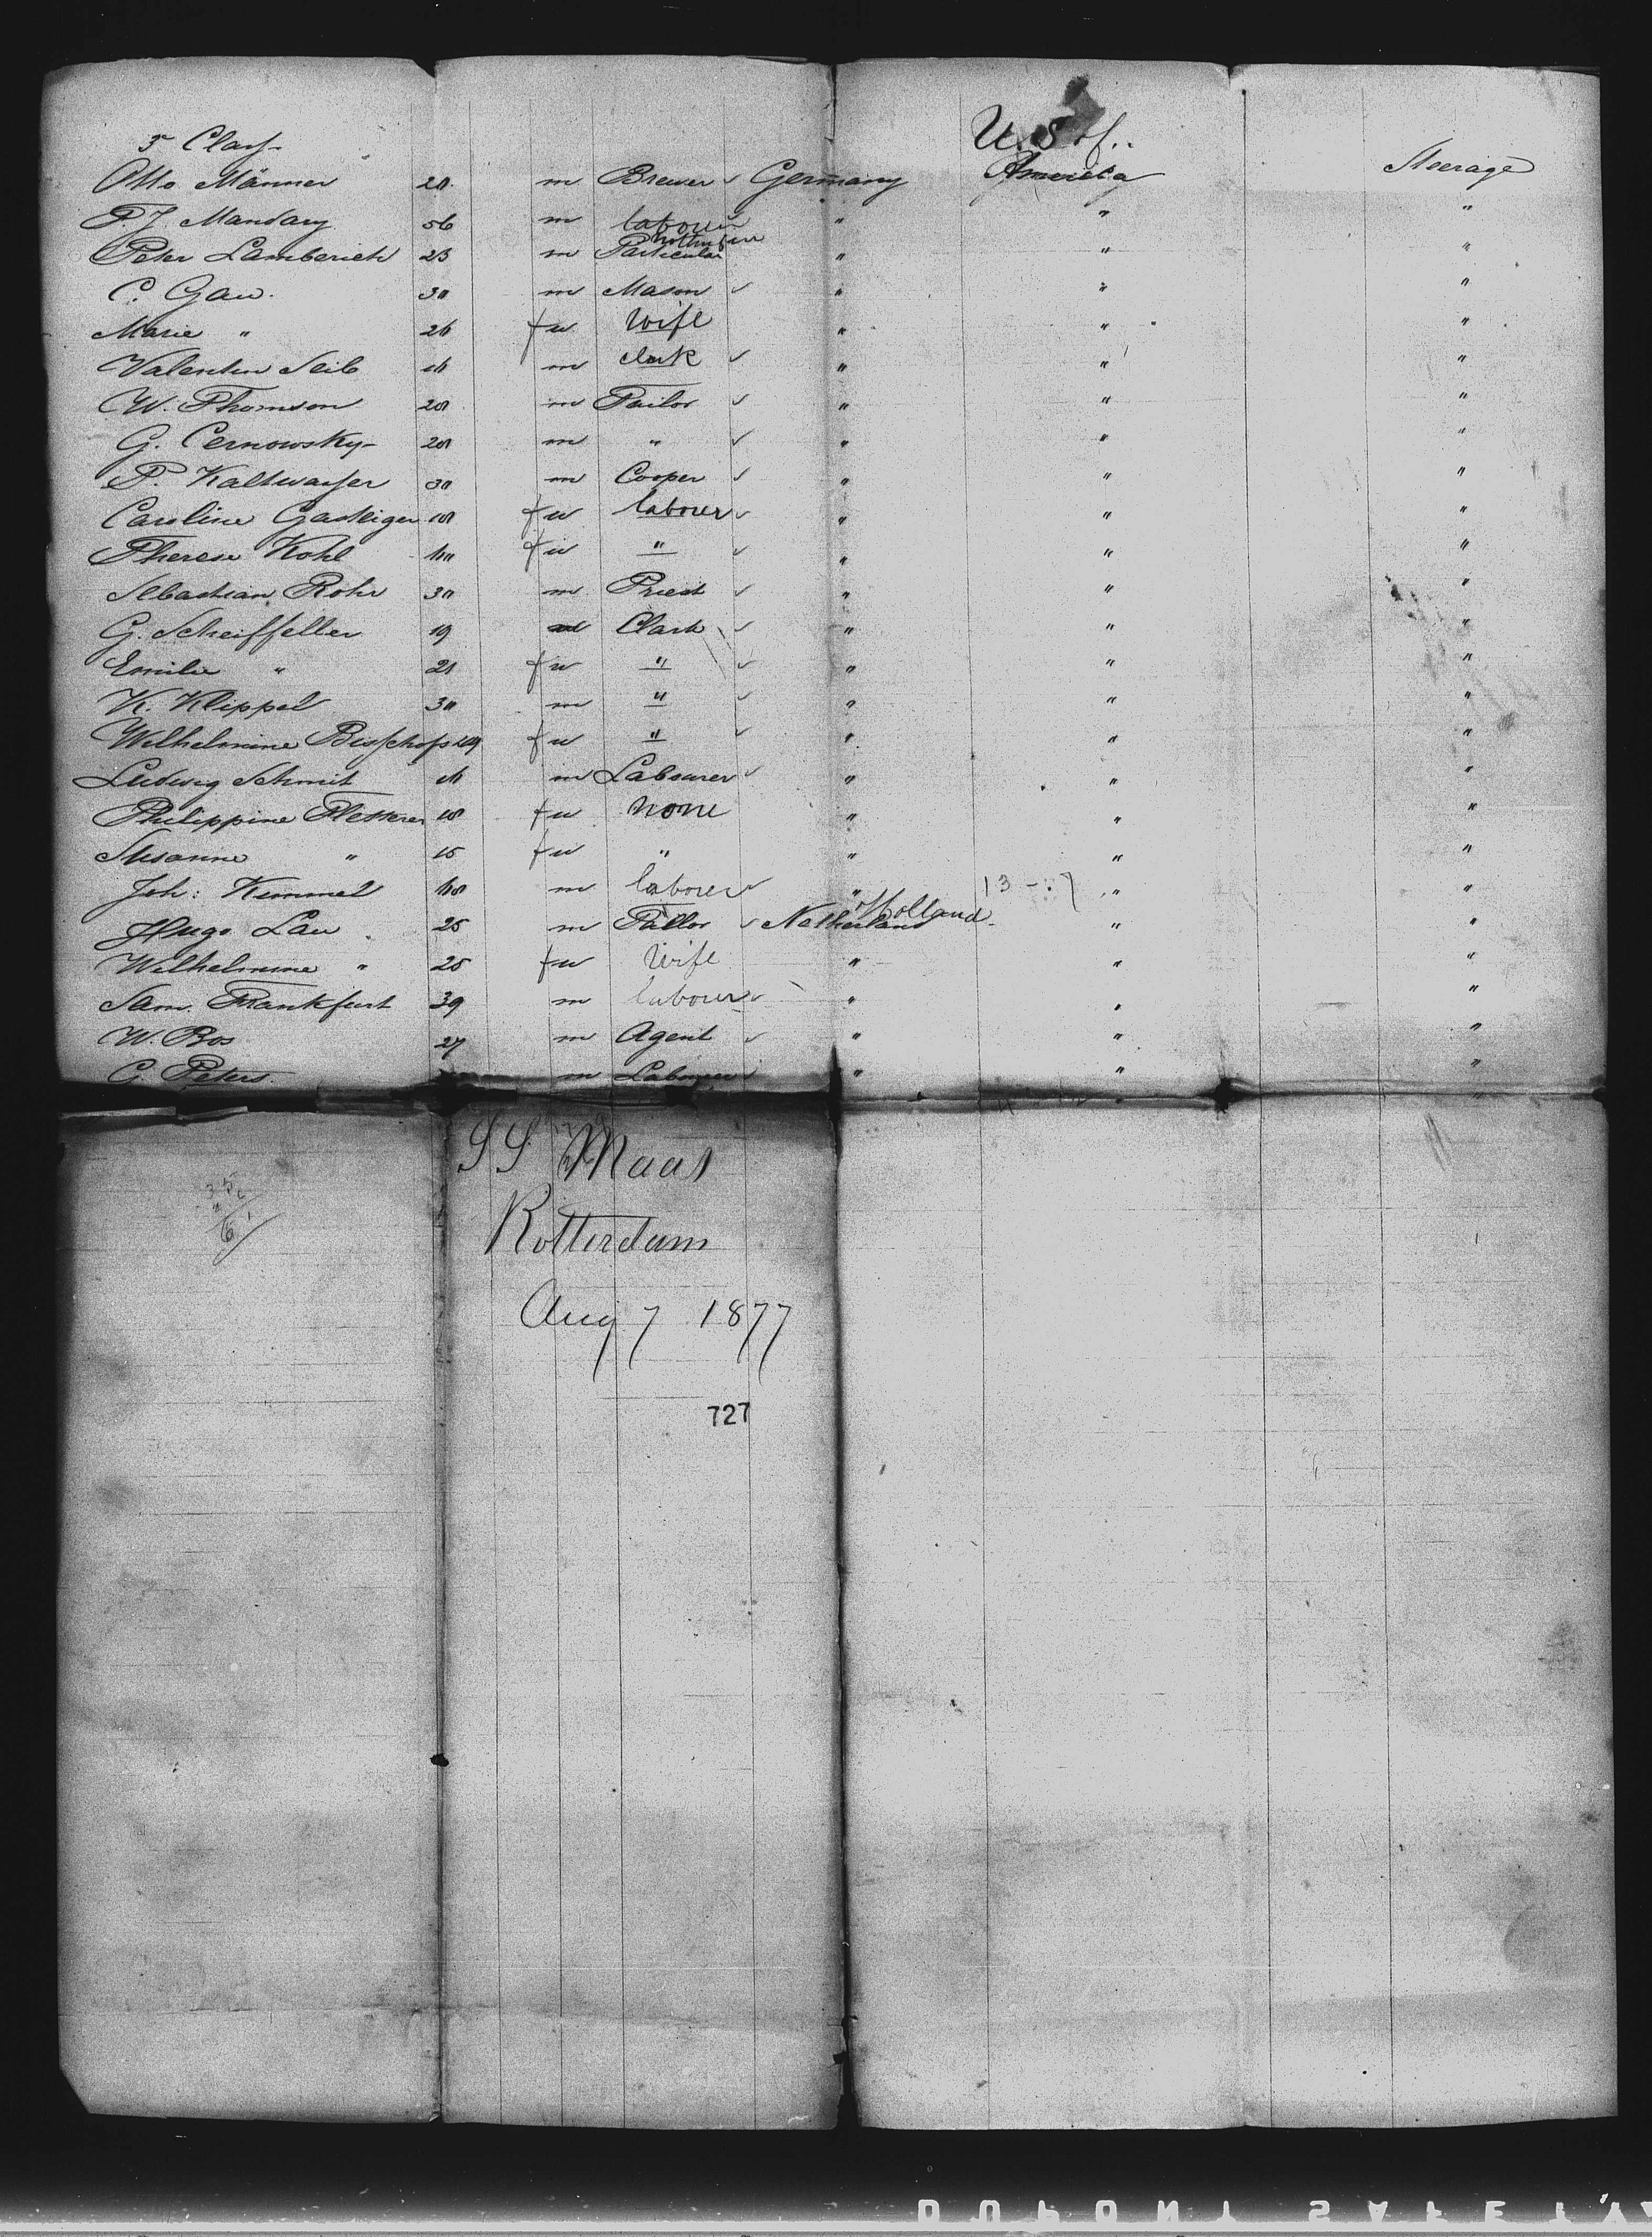 3 Class
U. S. of..
Otto Männer 20. m Brewer Germany America Steerage
P. J. Mandary 56 m labourer " " "
Peter Lamberich 23 m Particular " " "
C. Gau. 30 m Mason " " "
Marie " 26 f w Wife " " "
Valentin Seib m clerk " " "
W. Thomson 20 m Tailor " " "
G. Cernowsky 20 m " " " "
P. Kaltwasser 30 m Cooper " " "
Caroline Gasteiger 18 f w laborer " " "
Therese Kohl f w " " " "
Sebastian Rohr 30 m Priest " " "
G. Scheiffeller 19 Clark " " "
Emilie " 21 f w " " " "
K. Klippel 30 m " " " "
Wilhelmine Bisschops 29 f w " " " "
Ludwig Schmit m Labourer " " "
Philippine 18 f w none " " "
Susanne " 15 f w " " " "
Joh: Kimmel m laborer " 13 "  "
Hugo Lau 25 m Tailor Netherland Holland " "
Wilhelmine " 25 f w Wife " " "
Sam. Frankfurt 39 m labourer " " "
W. Bos 27 m Agent " " "
G. Peters. m Labourer " " "
SS Maas
Rotterdam
Aug 7 1877
727